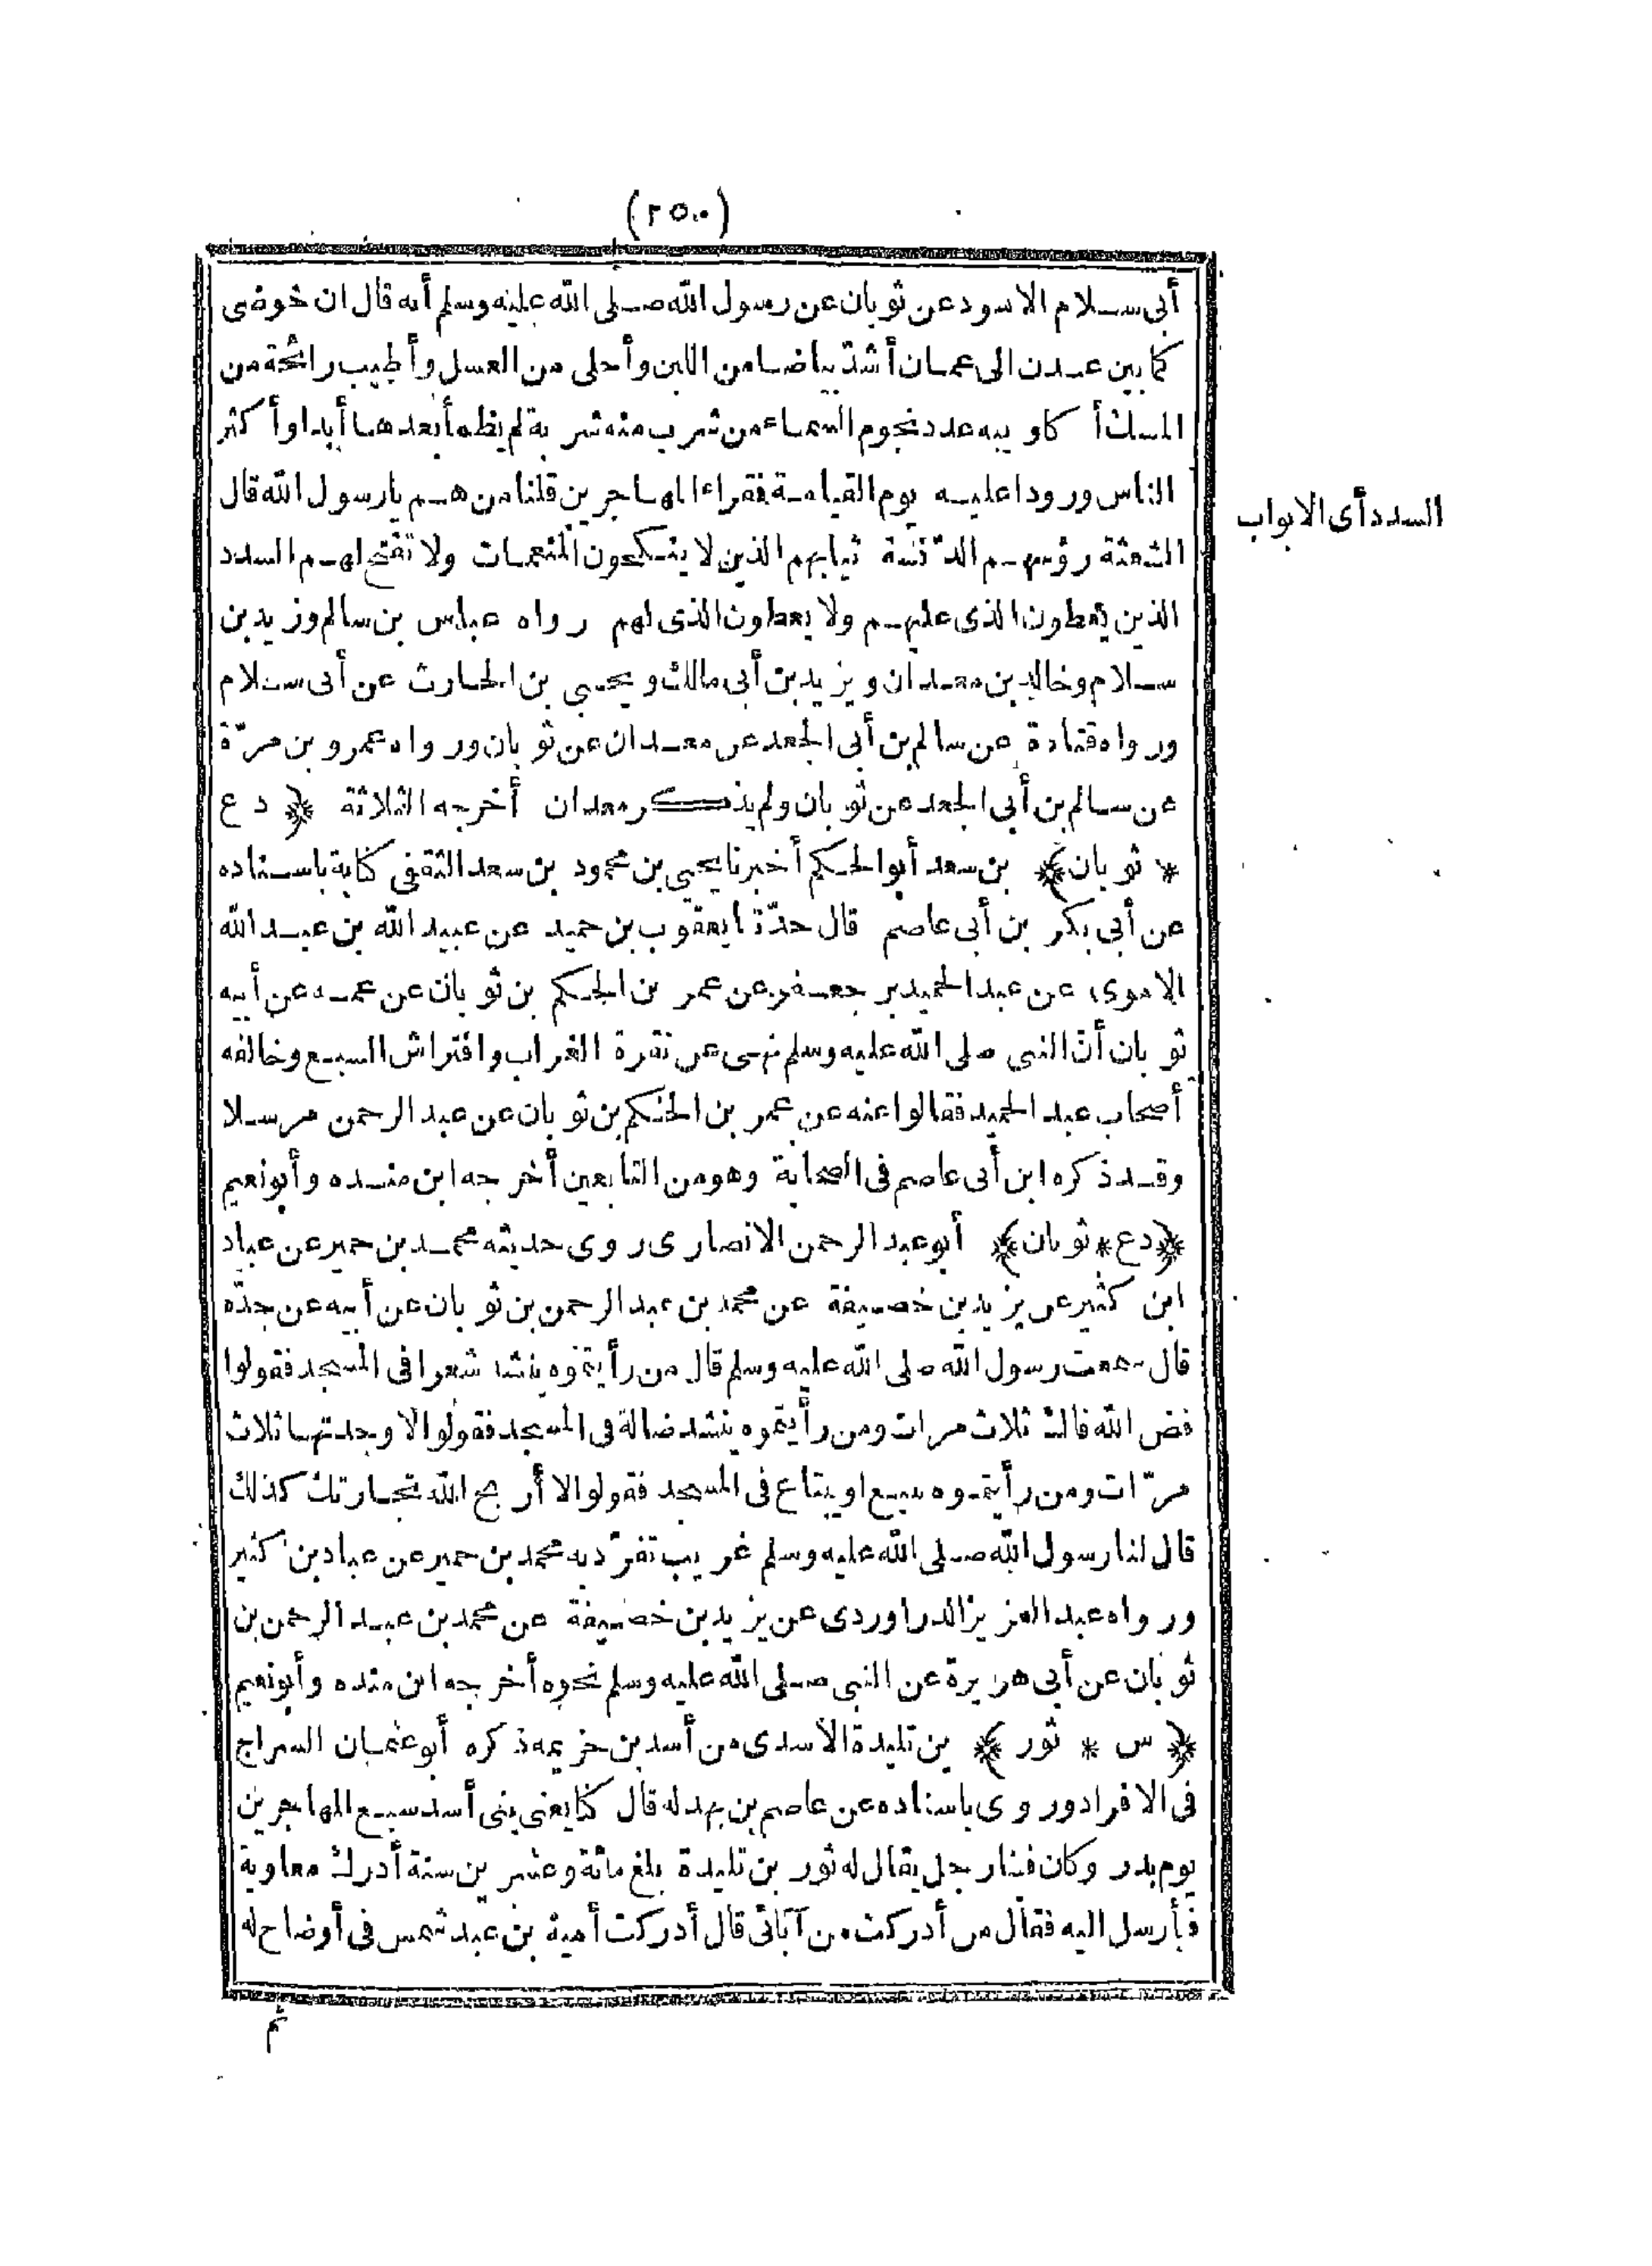 (٢٥٠)
أبى سلام الاسود عن ثوبان عن رسول الله صلى الله عليه وسلم أنه قال ان حوضى
كما بين عدن الى عمان أشدّ بياضا من اللبن وأحلى من العسل وأطيب رائحة من
المسك أكاويبه عدد نجوم السماء من شرب منه شربة لم يظمأ بعدها أبدا وأكثر
الناس ورودا عليه يوم القيامة فقراء المهاجرين قلنا من هم يا رسول الله قال
السدد أى الابواب
الشعثة رؤسهم الدّنسة ثيابهم الذين لا ينكحون المنعمات ولا تفتح لهم السدد
الذين يعطون الذى عليهم ولا يعطون الذى لهم رواه عباس بن سالم وزيد بن
سلام وخالد بن معدان ويزيد بن أبى مالك ويحيى بن الحارث عن أبى سلام
ورواه قتادة عن سالم بن أبى الجعد عن معدان عن ثوبان ورواه عمرو بن مرّة
عن سالم بن أبى الجعد عن ثوبان ولم يذكر معدان أخرجه الثلاثة ﴿ د ع
* ثوبان ﴾ بن سعد أبو الحكم أخبرنا يحيى بن محمود بن سعد الثقفى كتابة باسناده
عن أبى بكر بن أبى عاصم قال حدّثنا يعقوب بن حميد عن عبيد الله بن عبد الله
الاموى عن عبد الحميد بن جعفر عن عمر بن الحكم بن ثوبان عن عمه عن أبيه
ثوبان أنّ النبى صلى الله عليه وسلم نهى عن نقرة الغراب وافتراش السبع وخالفه
أصحاب عبد الحميد فقالوا عنه عن عمر بن الحكم بن ثوبان عن عبد الرحمن مرسلا
وقد ذكره ابن أبى عاصم فى الصحابة وهو من التابعين أخرجه ابن منده وأبو نعيم
﴿ د ع * ثوبان ﴾ أبو عبد الرحمن الانصارى روى حديثه محمد بن حمير عن عباد
ابن كثير عن يزيد بن خصيفة عن محمد بن عبد الرحمن بن ثوبان عن أبيه عن جدّه
قال سمعت رسول الله صلى الله عليه وسلم قال من رأيتموه ينشد شعرا فى المسجد فقولوا
فض الله فاك ثلاث مرات ومن رأيتموه ينشد ضالة فى المسجد فقولوا لا وجدتها ثلاث
مرّات ومن رأيتموه يبيع او يبتاع فى المسجد فقولوا لا أربح الله تجارتك كذلك
قال لنا رسول الله صلى الله عليه وسلم غريب تفرّد به محمد بن حمير عن عباد بن كثير
ورواه عبد العزيز الدراوردى عن يزيد بن خصيفة عن محمد بن عبد الرحمن بن
ثوبان عن أبى هريرة عن النبى صلى الله عليه وسلم نحوه أخرجه ابن منده وأبو نعيم
﴿ س * ثور ﴾ بن تليدة الاسدى من أسد بن خزيمه ذكره أبو عثمان السراج
فى الافراد وروى باسناده عن عاصم بن بهدله قال كنا يعنى بنى أسد سبع المهاجرين
يوم بدر وكان فينا رجل يقال له ثور بن تليدة بلغ مائة وعشرين سنة أدرك معاوية
فأرسل اليه فقال من أدركت من آبائى قال أدركت أمية بن عبد شمس فى أوضاح له
ثم